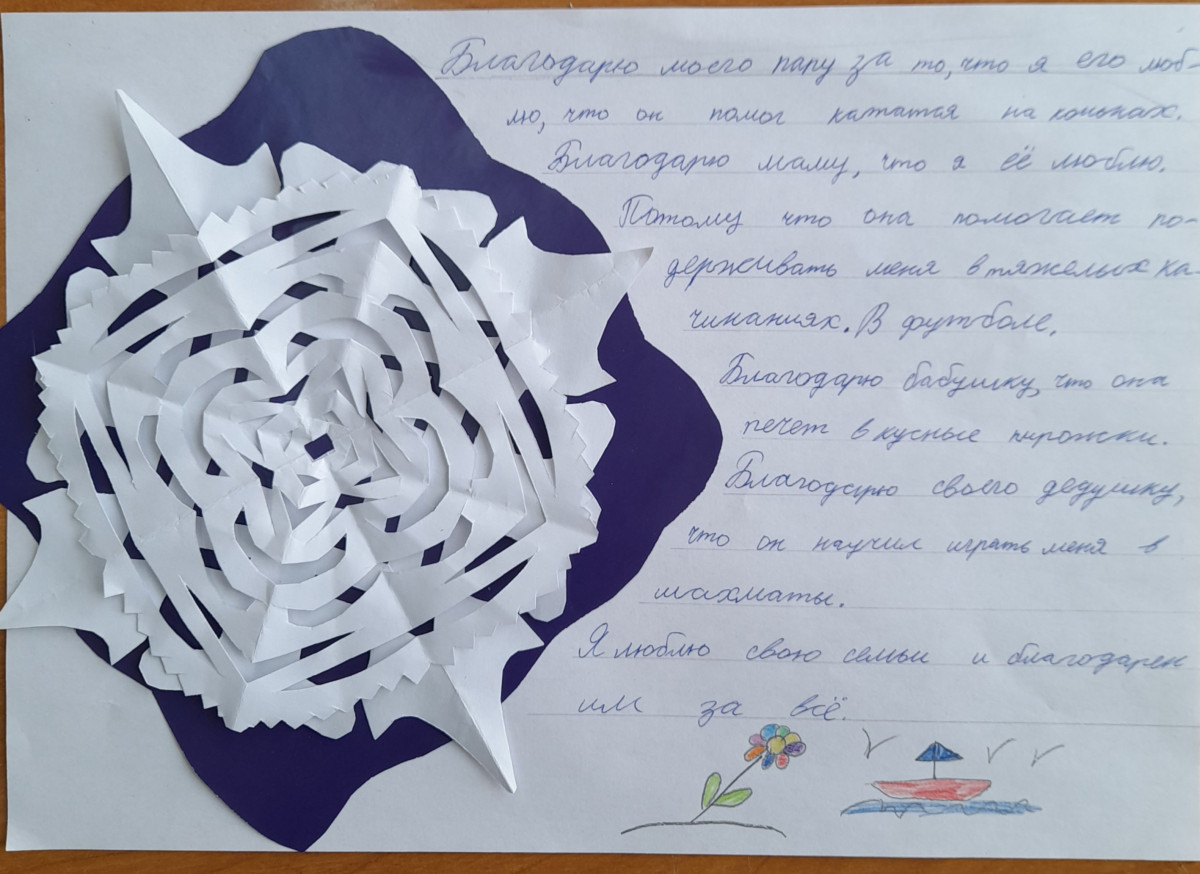 Благодарю моего папу за то, что я его люб-
лю, что он помог кататся на коньках.
Благодарю маму, что я её люблю.
Потому что она помогает по-
держивать меня в тяжелых на-
чинаниях. В футболе.
Благодарю бабушку, что она
печет вкусные пирожки.
Благодарю своего дедушку,
что он научил играть меня в
шахматы.
Я люблю свою семьи и благодарен
им за всё.